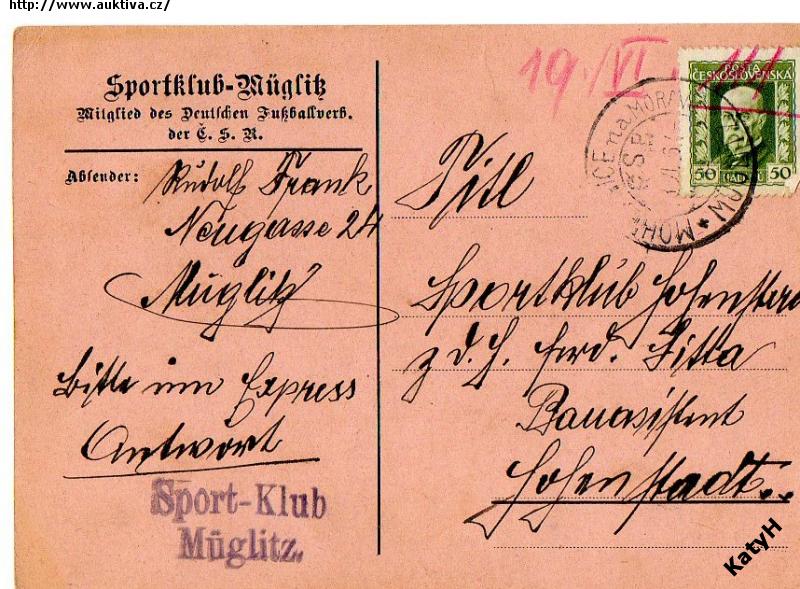 http://www.auktiva.cz/
Sportklub-Müglitz
Mitglied des Deutschen Fußballverb.
der Č. S. R.
Absender: Rudolf Frank
Neugasse 24
Müglitz
Bitte um Express
Antwort
Sport-Klub
Müglitz.
19./VI
POŠTA
ČESKOSLOVENSKÁ
50 HALÉŘŮ 50
Titl
Sportklub Hohenstadt
z. d. H. Ferd. Zitta
Bauasistent
Hohenstadt.
KatyH